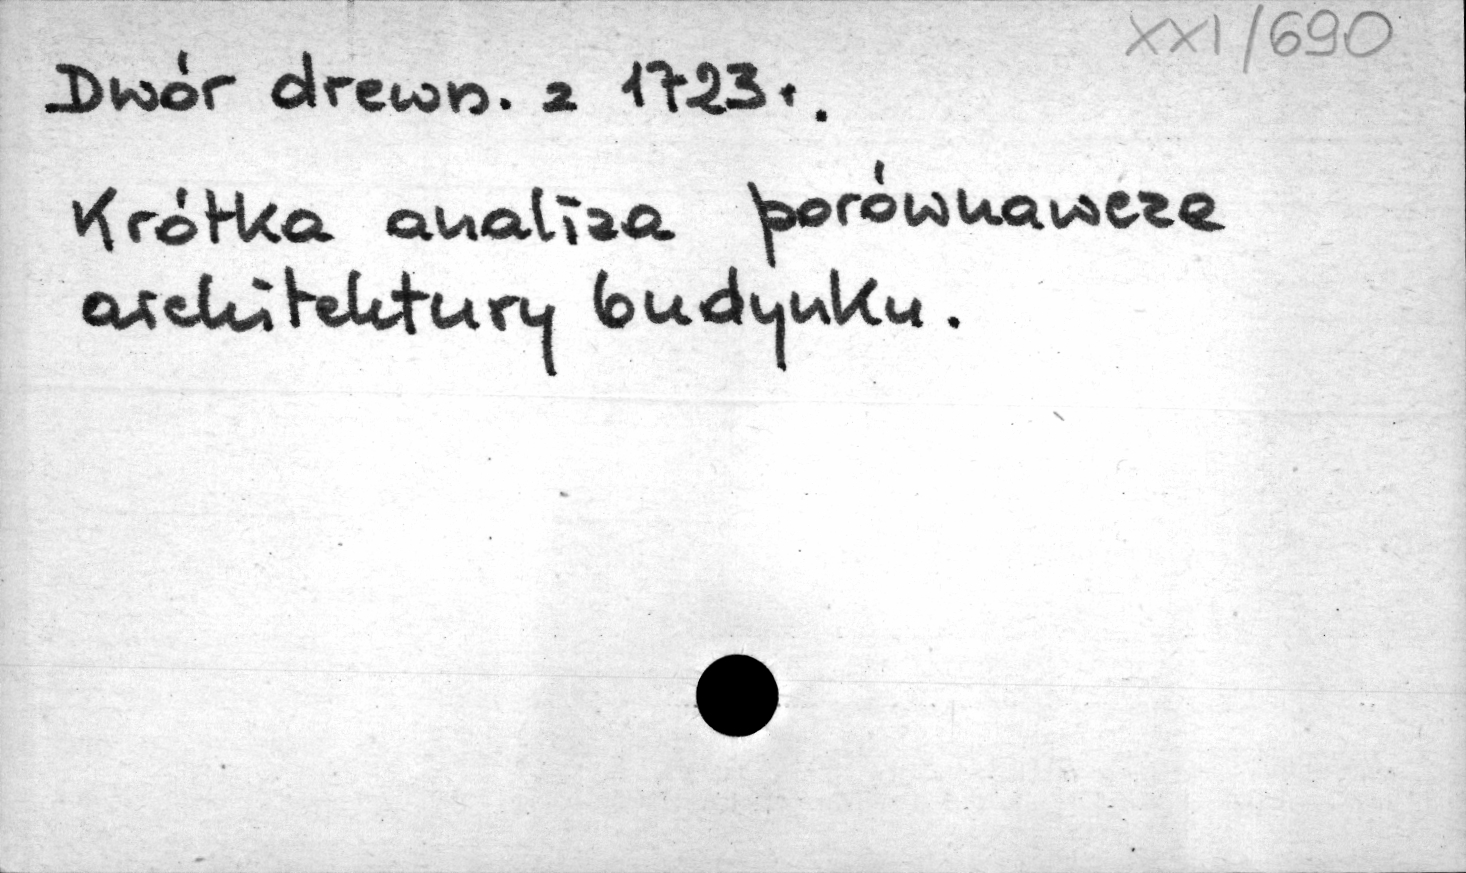 XXI/690
Dwór drewn. z 1723 r.
Krótka analiza porównawcza
architektury budynku.